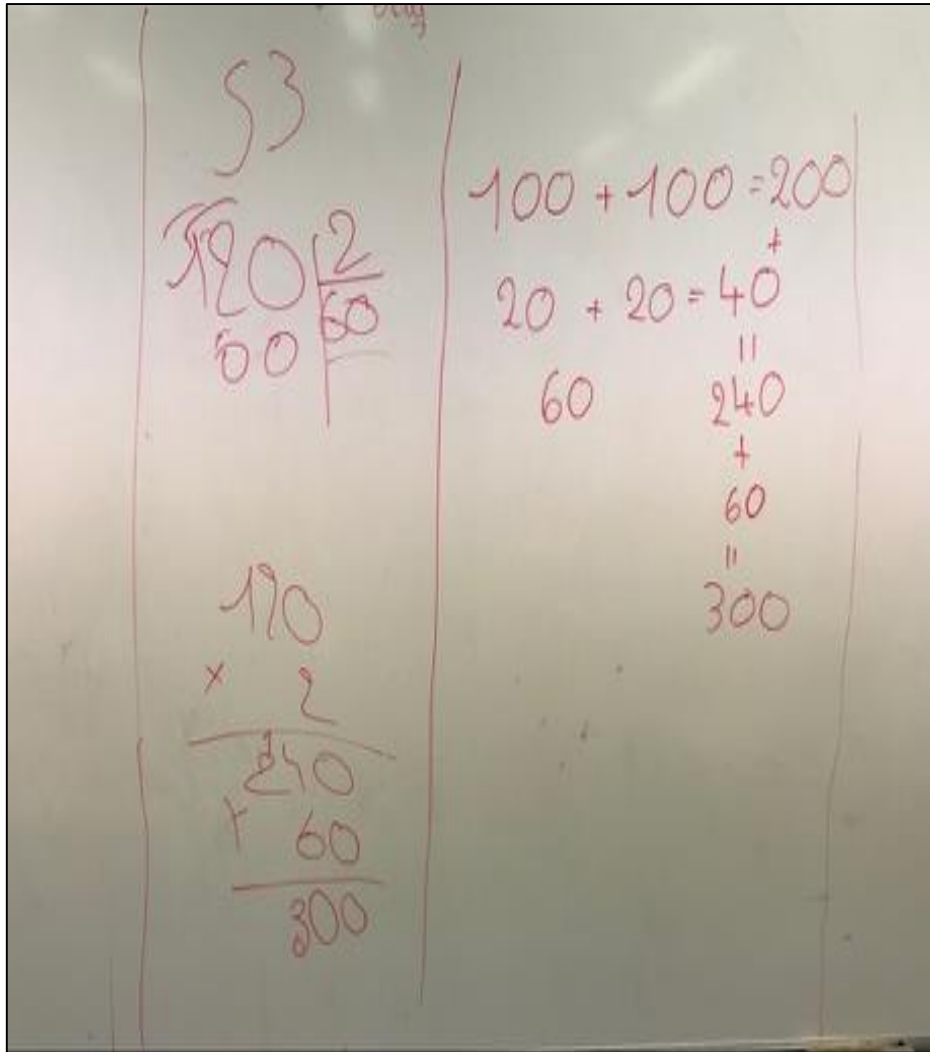 S3
120 | 2
00 | 60
120
× 2
240
+ 60
300
100 + 100 = 200
+
20 + 20 = 40
=
60 240
+
60
=
300